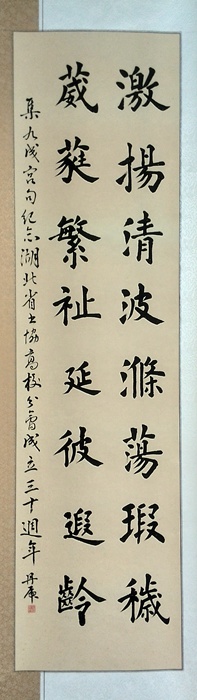 激揚清波滌蕩瑕穢
葳蕤繁祉延彼遐齡
集九成宮句纪念湖北省书協高校分會成立三十週年